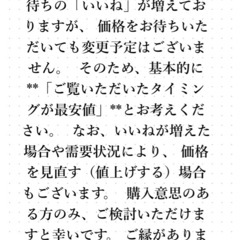 待ちの「いいね」が増えてお
りますが、 価格をお待ちいた
だいても変更予定はございま
せん。 そのため、基本的に
**「ご覧いただいたタイミン
グが最安値」**とお考えくだ
さい。 なお、いいねが増えた
場合や需要状況により、 価格
を見直す（値上げする）場合
もございます。 購入意思のあ
る方のみ、ご検討いただけま
すと幸いです。 ご縁がありま